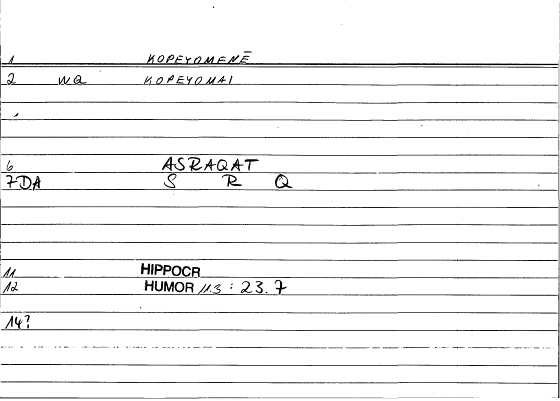 1 KOPEYOMENĒ
2 WQ KOPEYOMAI
6 ASRAQAT
7DA S R Q
11 HIPPOCR
12 HUMOR 113 : 23.7
14?